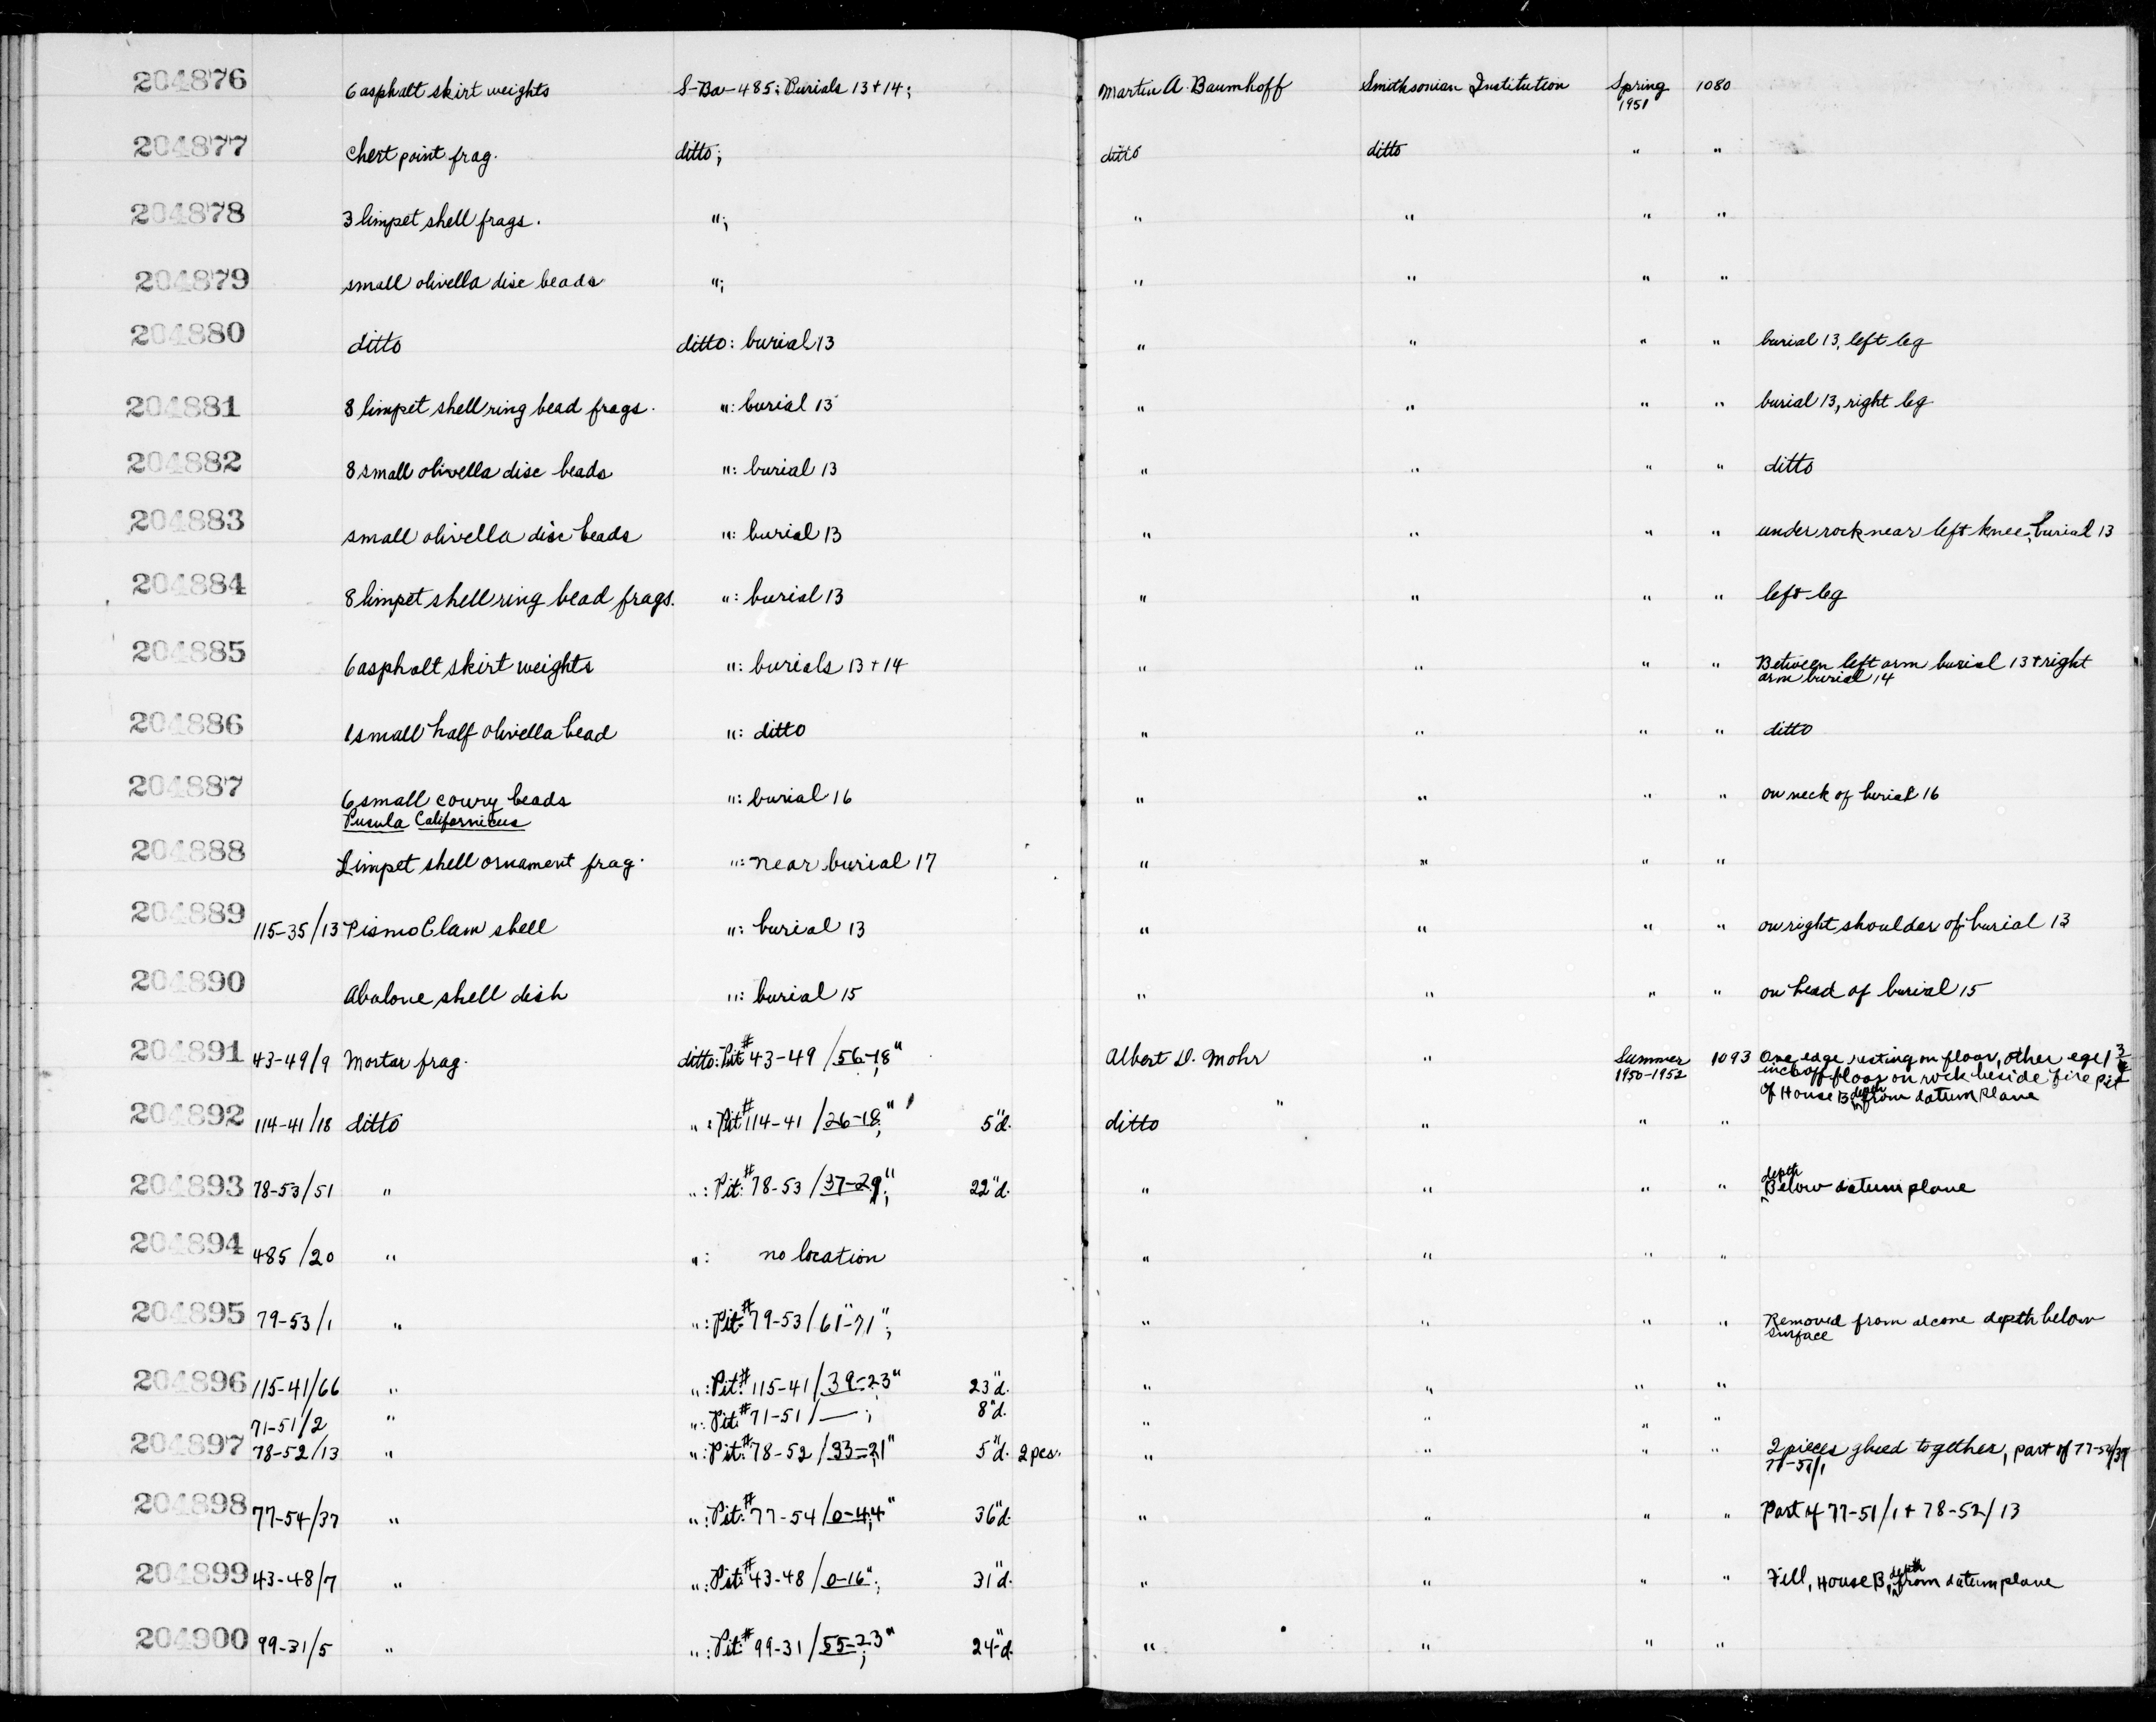 204876 6 asphalt skirt weights S-Ba-485: Burials 13+14; Martin A. Baumhoff Smithsonian Institution Spring 1080
1951
204877 Chert point frag. ditto; ditto ditto " "
204878 3 limpet shell frags. "; " " " "
204879 small olivella disc beads "; " " " "
204880 ditto ditto: burial 13 " " " " burial 13, left leg
204881 8 limpet shell ring bead frags. ": burial 13 " " " " burial 13, right leg
204882 8 small olivella disc beads ": burial 13 " " " " ditto
204883 small olivella disc beads ": burial 13 " " " " under rock near left knee, burial 13
204884 8 limpet shell ring bead frags. ": burial 13 " " " " left leg
204885 6 asphalt skirt weights ": burials 13+14 " " " " Between left arm burial 13+right
arm burial 14
204886 1 small half olivella bead ": ditto " " " " ditto
204887 6 small cowry beads ": burial 16 " " " " on neck of burial 16
Pusula Californicus
204888 Limpet shell ornament frag. ": near burial 17 " " " "
204889 115-35/13 Pismo Clam shell ": burial 13 " " " " on right shoulder of burial 13
204890 Abalone shell dish ": burial 15 " " " " on head of burial 15
204891 43-49/9 Mortar frag. ditto: Pit #43-49/56-18" Albert D. Mohr " Summer 1093 One edge resting on floor, other ege 1 3/4
1950-1952 inch off floor on rock beside fire pit
of House B, depth from datum plane
204892 114-41/18 ditto ": Pit #114-41/26-18"; 5"d. ditto " " "
204893 78-53/51 " ": Pit: #78-53/37-29"; 22"d. " " " " depth Below datum plane
204894 485/20 " ": no location " " " "
204895 79-53/1 " ": Pit #79-53/61"-71"; " " " " Removed from alcone depth below
surface
204896 115-41/66 " ": Pit: #115-41/39-23"; 23"d. " " " "
71-51/2 " ": Pit: #71-51/—; 8"d. " " " "
204897 78-52/13 " ": Pit: #78-52/33-21"; 5"d. 2 pcs. " " " " 2 pieces glued together, part of 77-54/37
77-51/1
204898 77-54/37 " ": Pit: #77-54/0-44"; 36"d. " " " " Part of 77-51/1 + 78-52/13
204899 43-48/7 " ": Pit: #43-48/0-16"; 31"d. " " " " Fill, House B, depth from datum plane
204900 99-31/5 " ": Pit: #99-31/55-23"; 24"d. " " " "